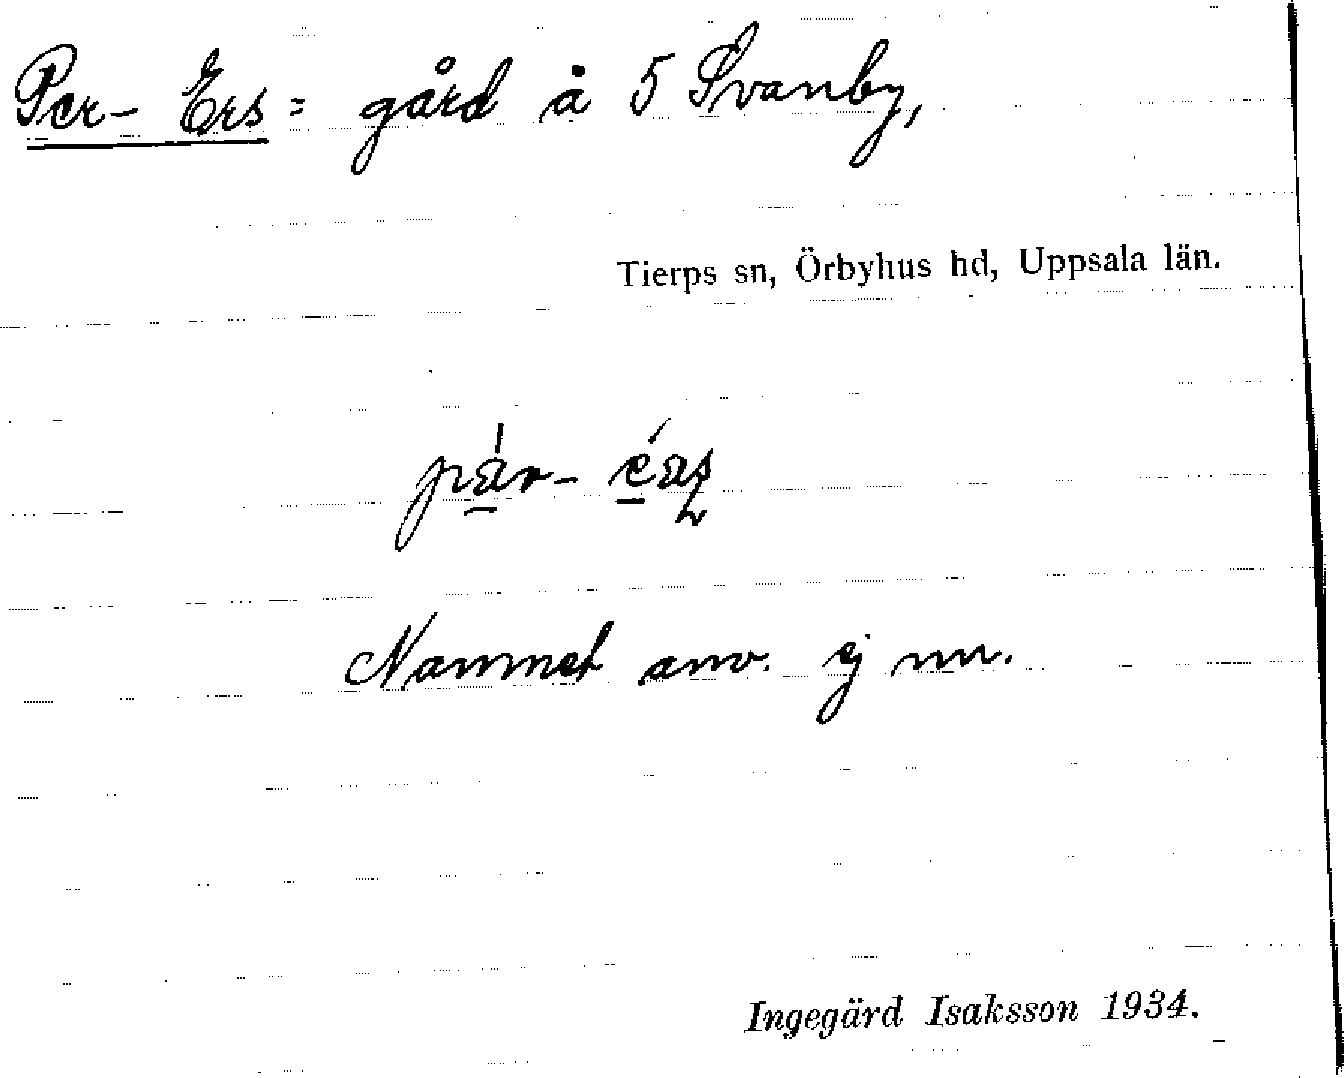 Per-Ers = gård å 5 Svanby,
Tierps sn, Örbyhus hd, Uppsala län.
Namnet anv. ej nu.
Ingegärd Isaksson 1934.